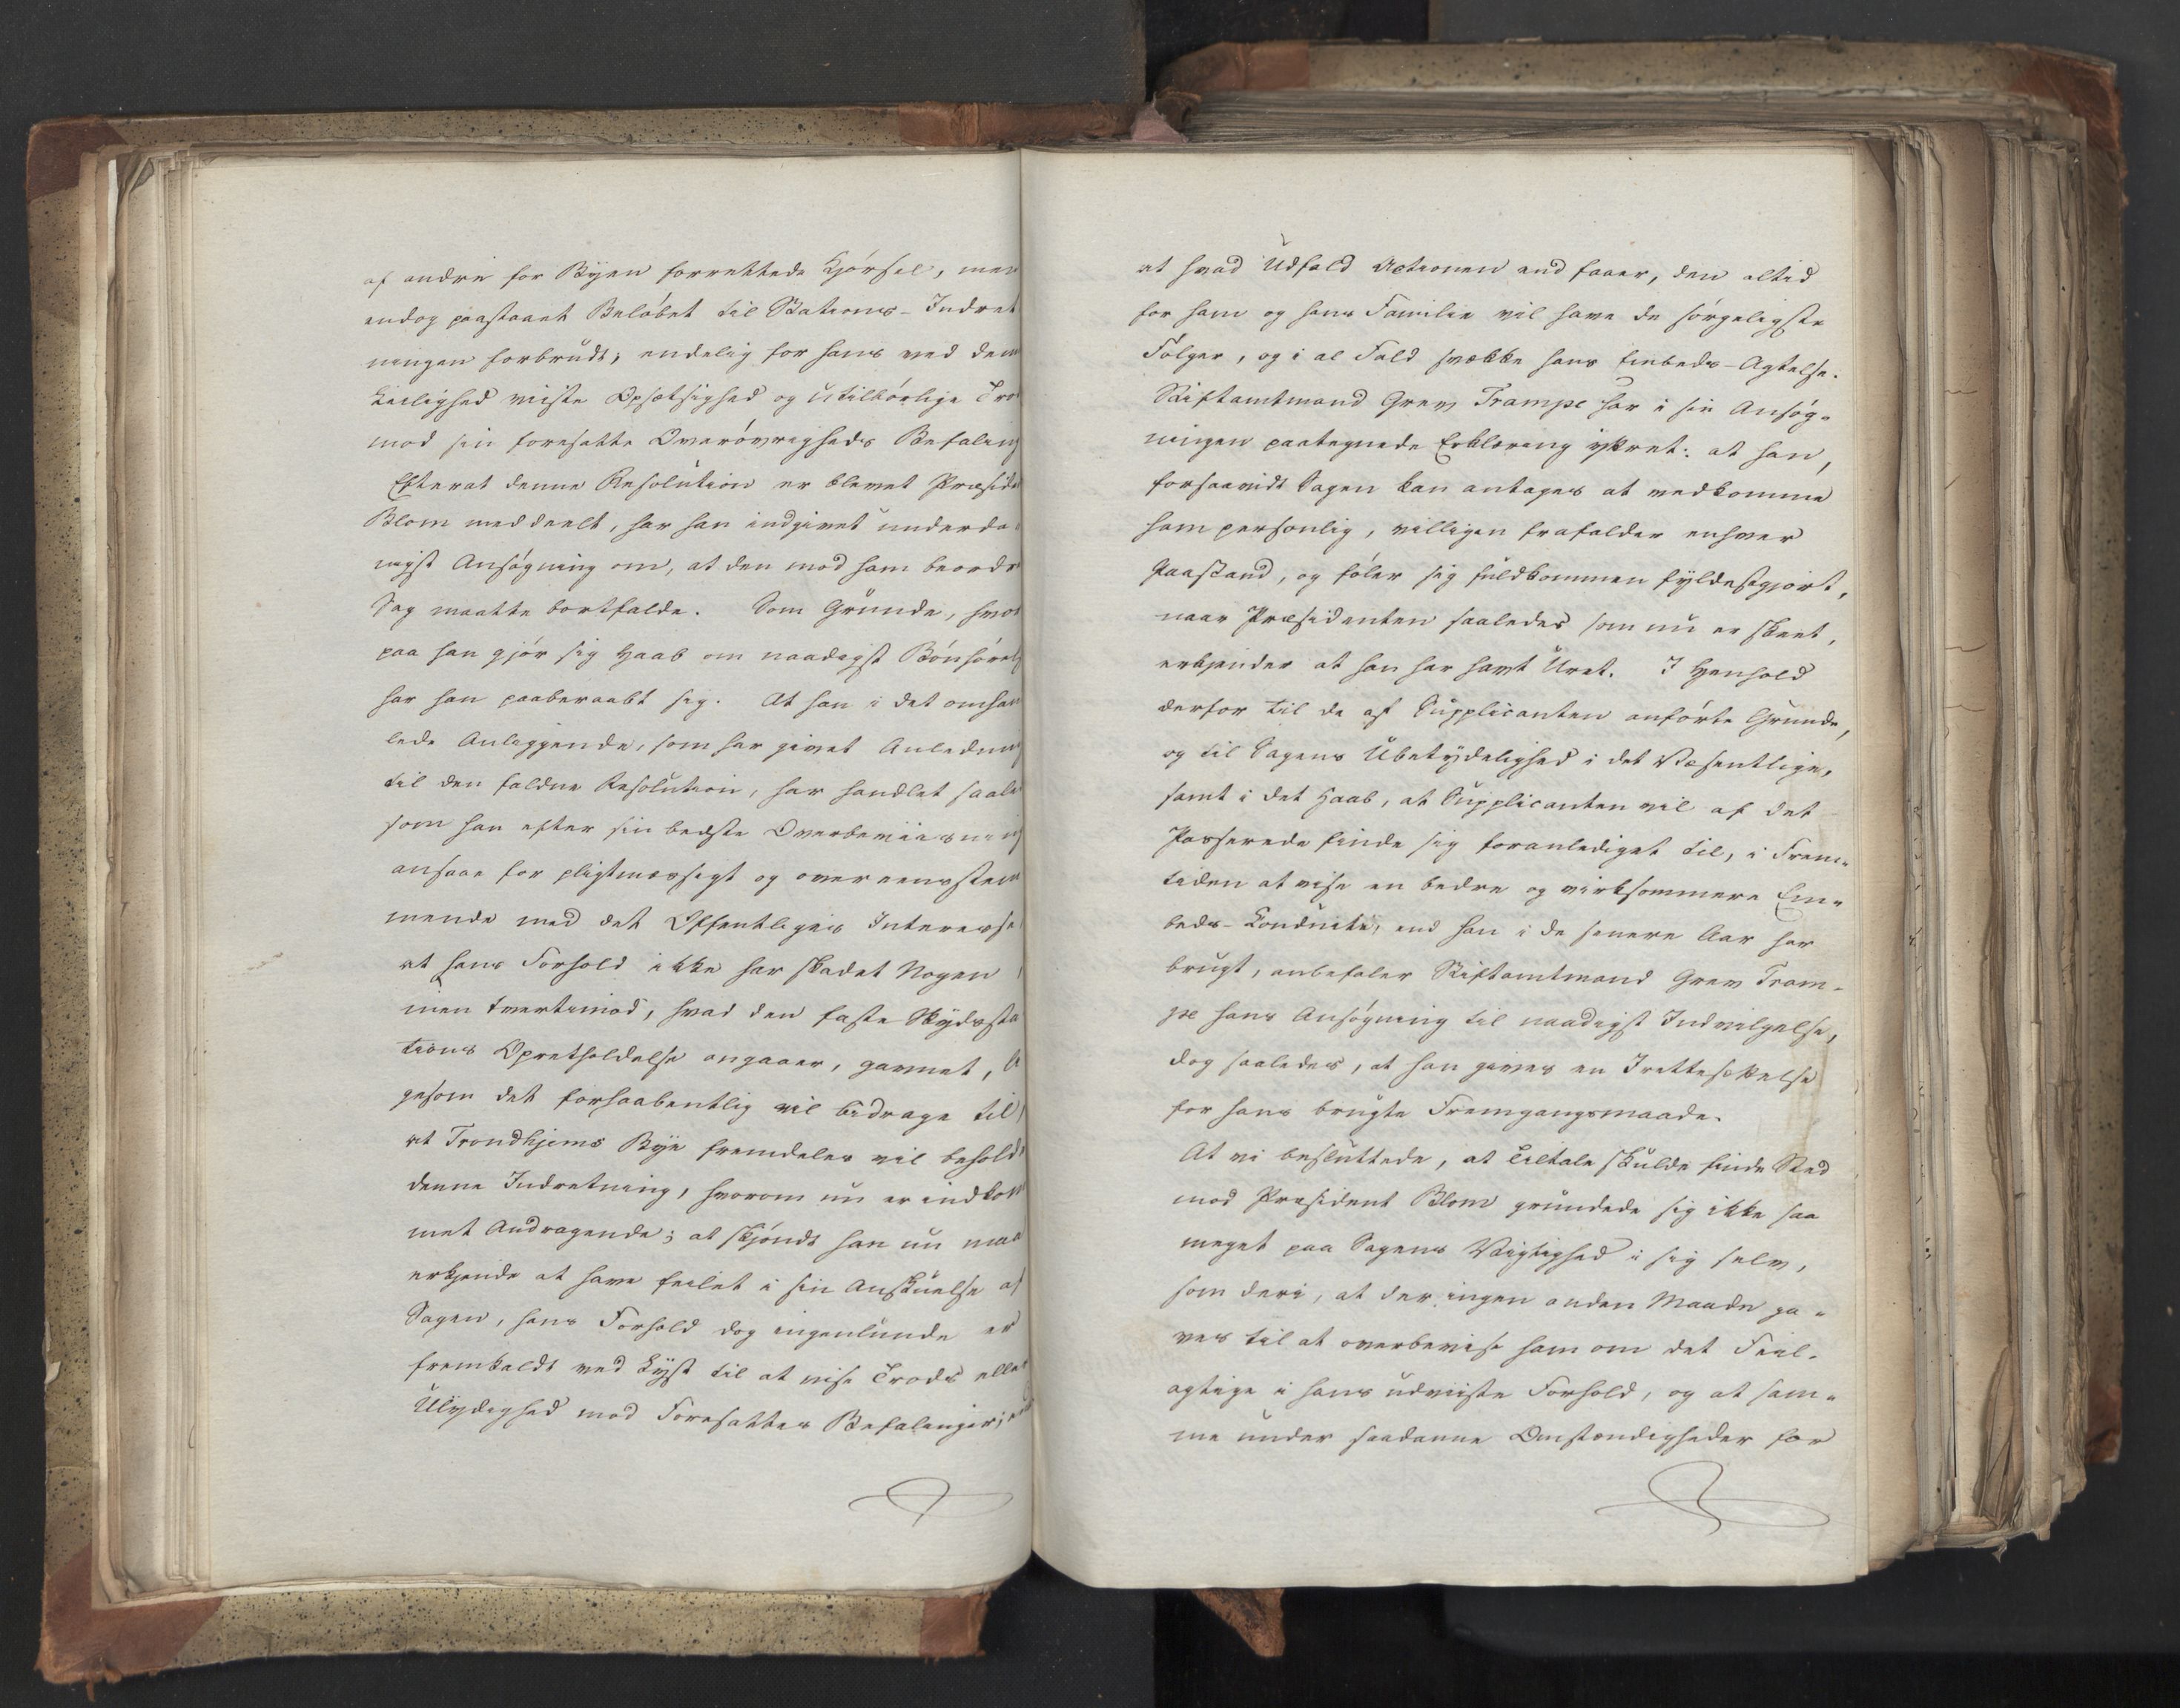 af andre for Byen forrettede Kjørsel, men
endog paastaaet Beløbet til Stations-Indret
ningen forbrudt; endelig for hans ved den
Leilighed viiste Opsetsighed og utilbørlige Tro
mod sin foresatte Overøvrigheds Befaling
Efterat denne Resolution er blevet Præsid
Blom meddeelt, har han indgivet underda
nigst Ansøgning om, at den mod ham beordr
Sag maatte bortfalde. Som Grunde, hvor
paa han gjør sig Haab om naadigst Bønhørel
har han paaberaabt sig. At han i det omhan
lede Anliggende, som har givet Anledning
til den faldne Resolution, har handlet saale
som han efter sin bedste Overbeviisning
ansaae for pligtmæssigt og overeensstem
mende med det Offentliges Interesse
at hans Forhold ikke har skadet Nogen
men tvertimod, hvad den faste Skydssta
tions Opretholdelse angaaer, gavnet, li
gesom det forhaabentlig vil bidrage til
at Trondhjems Bye fremdeles vil behold
denne Indretning, hvorom nu er indkom
met Andragende; at skjøndt han nu maa
erkjende at have feilet i sin Anskuelse af
Sagen, hans Forhold dog ingenlunde er
fremkaldt ved Lyst til at vise Trods eller
Ulydighed mod Foresattes Befalinger;
at hvad Udfald Actionen end faaer, den altid
for ham og hans Familie vil have de sørgeligste
Følger, og i al Fald svække hans Embeds-Agtelse.
Stiftamtmand Grev Trampe har i sin Ansøg-
ningen paategnede Erklæring yttret: at han,
forsaavidt Sagen kan antages at vedkomme
ham personlig, villigen frafalder enhver
Paastand, og føler sig fuldkommen fyldestgjort,
naar Præsidenten saaledes som nu er skeet,
erkjender at han har havt Uret. I Henhold
derfor til de af Supplicanten anførte Grunde,
og til Sagens Ubetydelighed i det Væsentlige,
samt i det Haab, at Supplicanten vil af det
Passerede finde sig foranlediget til, i Frem-
tiden at vise en bedre og virksommere Em-
beds-Conduite, end han i de senere Aar har
brugt, anbefaler Stiftamtmand Grev Tram-
pe hans Ansøgning til naadigst Indvilgelse,
dog saaledes, at han gives en Irettesættelse
for hans brugte Fremgangsmaade.
At vi besluttede, at Tiltale skulde finde Sted
mod Præsident Blom grundede sig ikke saa
meget paa Sagens Vigtighed i sig selv,
som deri, at der ingen anden Maade ga-
ves til at overbevise ham om det Feil-
agtige i hans udviiste Forhold, og at sam-
me under saadanne Omstændigheder for